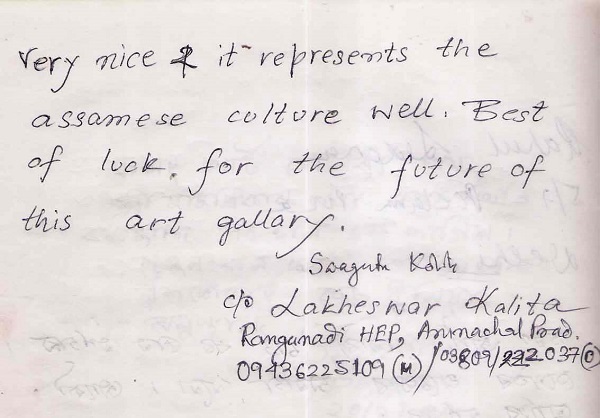 very nice & it represents the
assamese culture well. Best
of luck. for the future of
this art gallary.
c/o Lakheswar Kalita
Ranganadi HEP, Arunachal Prad.
09436225109 (M) / 03809/222037 (O)